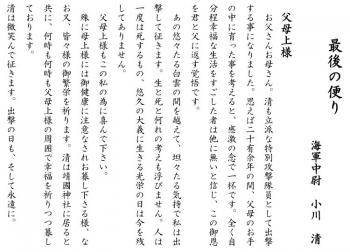 最後の便り
海軍中尉　小川　清
父母上様
　お父さんお母さん。清も立派な特別攻撃隊員として出撃
する事になりました。思えば二十有余年の間、父母のお手
の中に育った事を考えると、感激の念で一杯です。全く自
分程幸福な生活をすごした者は他に無いと信じ、この御恩
を君と父に返す覚悟です。
　あの悠々たる白雲の間を越えて、坦々たる気持で私は出
撃して征きます。生と死と何れの考えも浮びません。人は
一度は死するもの、悠久の大義に生きる光栄の日は今を残
してありません。
　父母上様もこの私の為に喜んで下さい。
　殊に母上様には御健康に注意なされお暮し下さる様、な
お又、皆々様の御繁栄を祈ります。清は靖國神社に居ると
共に、何時も何時も父母上様の周囲で幸福を祈りつつ暮し
ております。
　清は微笑んで征きます。出撃の日も、そして永遠に。